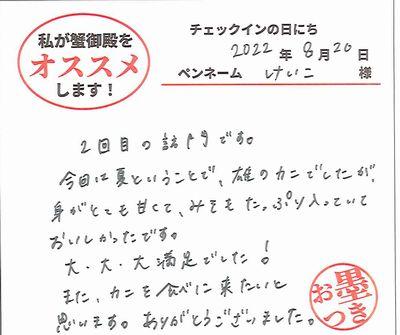 私が蟹御殿を
オススメ
します！
チェックインの日にち
2022年8月20日
ペンネーム けいこ 様
2回目の訪問です。
今回は夏ということで、雄のカニでしたが、
身がとても甘くて、みそもたっぷり入っていて
おいしかったです。
大・大・大満足でした！
また、カニを食べに来たいと
思います。ありがとうございました。
お墨つき